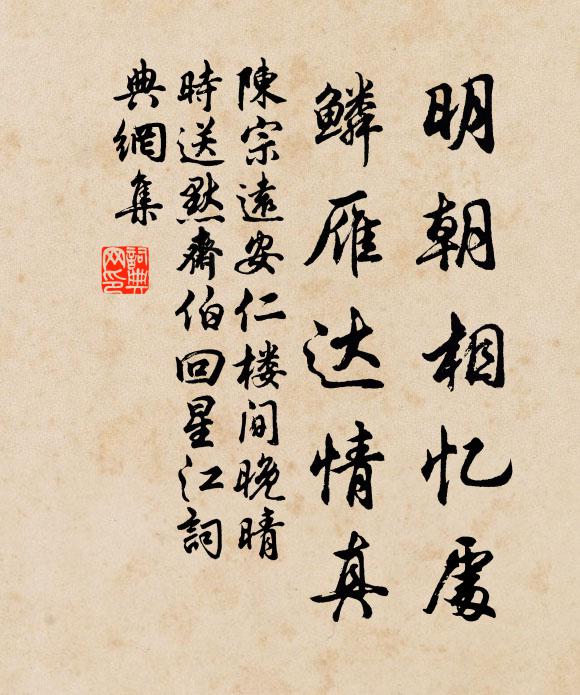 明朝相忆處
鱗雁达情真
陳宗遠安仁楼间晚晴
時送默齋伯回星江詞
典網集
詞典网印